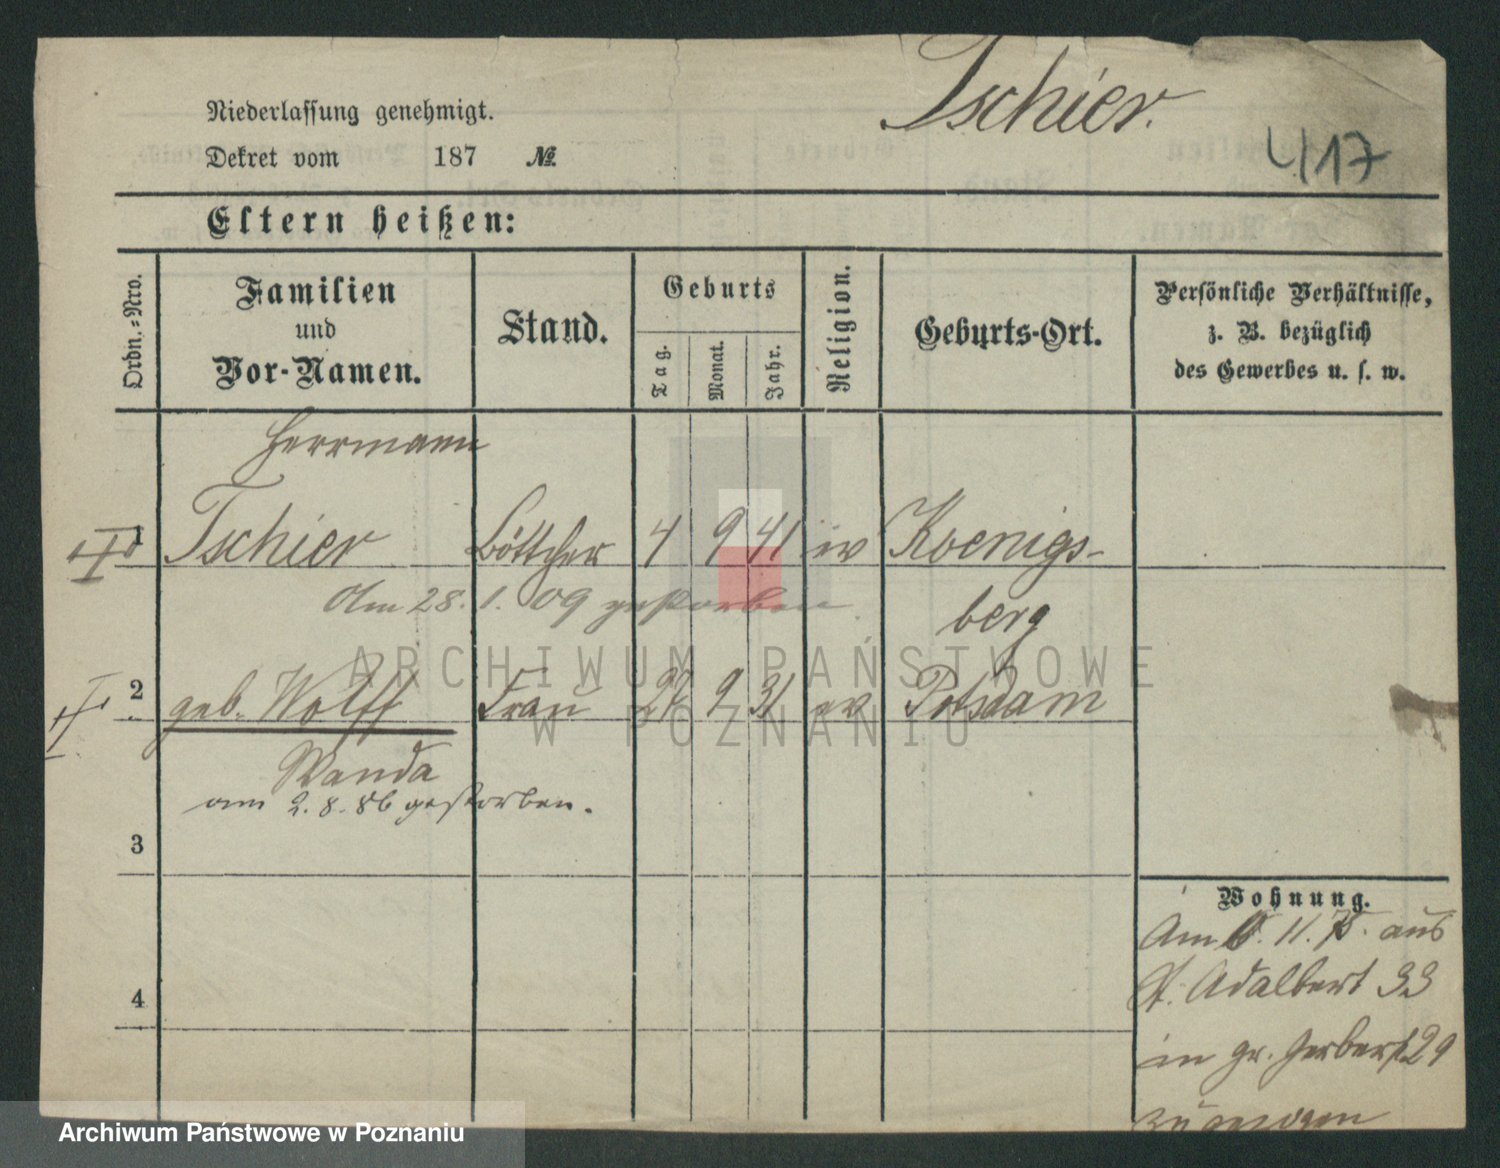 Tschier.
4/17
Niederlassung genehmigt.
Dekret vom 187 №
Eltern heißen:
Ordn.-Nro. Familien und Vor-Namen. Stand. Geburts Tag. Monat. Jahr. Religion. Geburts-Ort. Persönliche Verhältnisse, z. B. bezüglich des Gewerbes u. s. w.
Herrmann
1 Tschier Böttcher 4 9 41 ev Koenigs-
berg
Am 28. 1. 09 gestorben
2 geb. Wolff Frau 9 31 ev Potsdam
Wanda
am 2. 8. 86 gestorben.
3
4
Wohnung.
Am 11. aus
St. Adalbert 33
in gr. Gerberst 29
zugezogen
ARCHIWUM PAŃSTWOWE
W POZNANIU
Archiwum Państwowe w Poznaniu